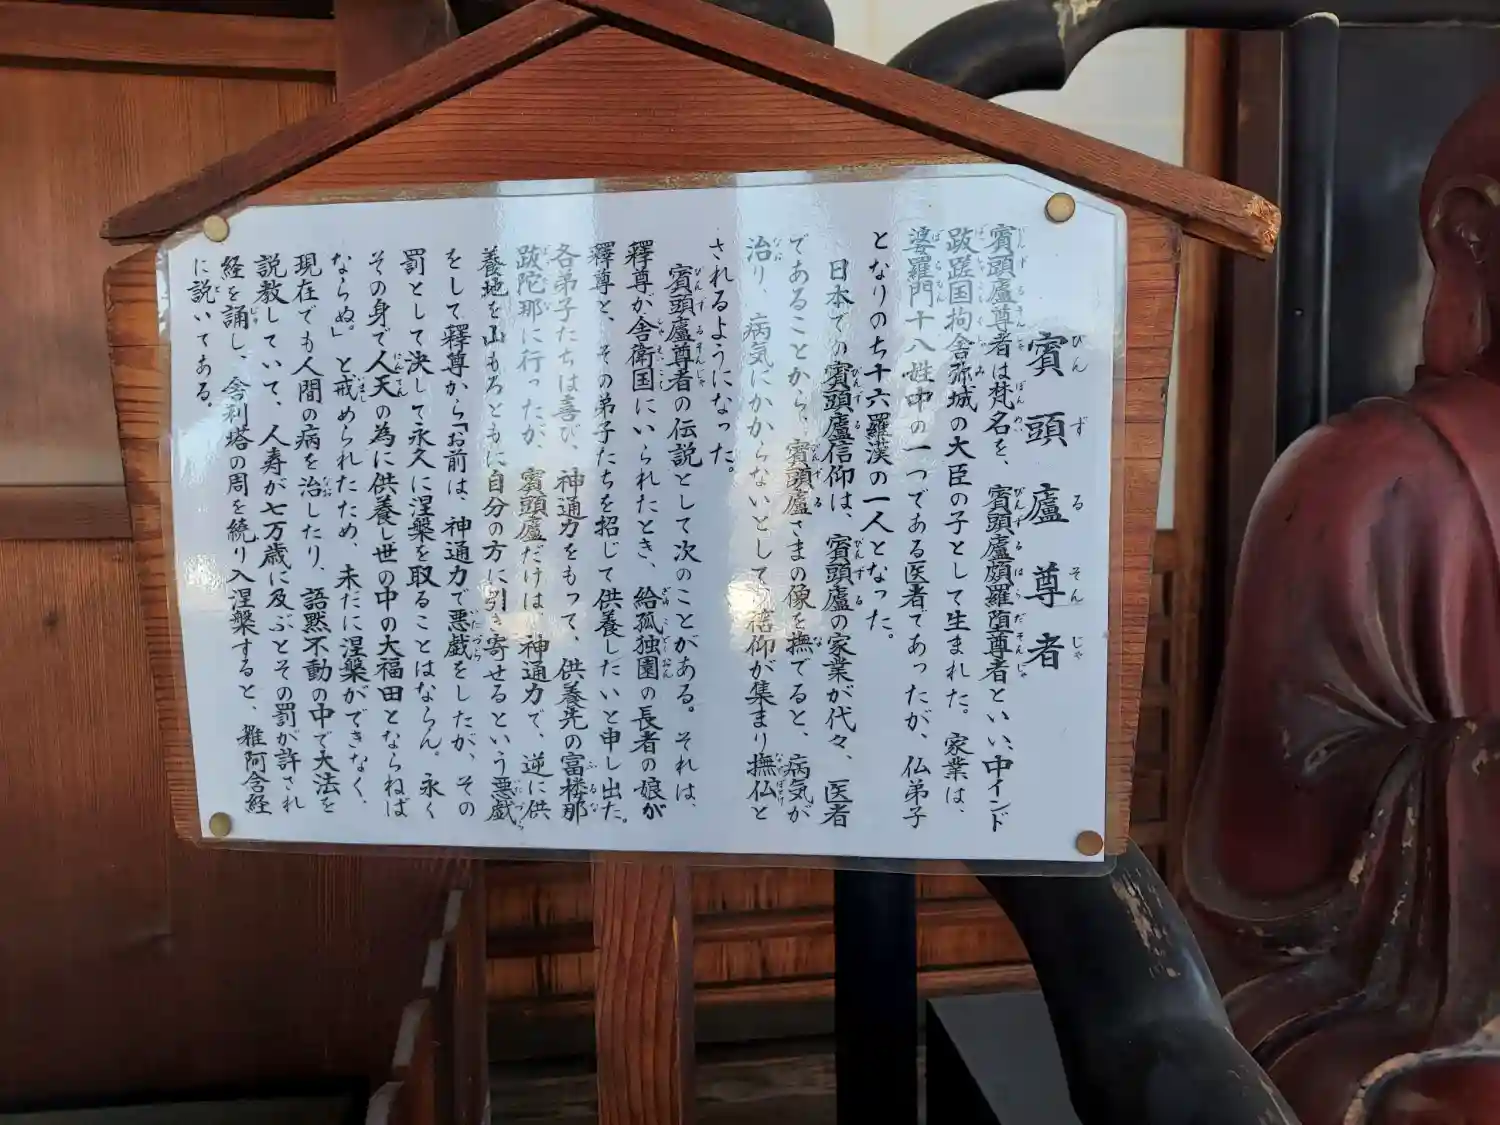 賓頭廬尊者
賓頭廬尊者は梵名を、賓頭廬頗羅堕尊者といい、中インド
跋蹉国拘舎弥城の大臣の子として生まれた。家業は、
婆羅門十八姓中の一つである医者であったが、仏弟子
となりのち十六羅漢の一人となった。
日本での賓頭廬信仰は、賓頭廬の家業が代々、医者
であることから、賓頭廬さまの像を撫でると、病気が
治り、病気にかからないとして信仰が集まり撫仏と
されるようになった。
賓頭廬尊者の伝説として次のことがある。それは、
釋尊が舎衛国にいられたとき、給孤独園の長者の娘が
釋尊と、その弟子たちを招じて供養したいと申し出た。
各弟子たちは喜び、神通力をもって、供養先の富楼那
跋陀那に行ったが、賓頭廬だけは、神通力で、逆に供
養地を山もろともに自分の方に引き寄せるという悪戯
をして釋尊から「お前は、神通力で悪戯をしたが、その
罰として決して永久に涅槃を取ることはならん。永く
その身で人天の為に供養し世の中の大福田とならねば
ならぬ。」と戒められたため、未だに涅槃ができなく、
現在でも人間の病を治したり、語黙不動の中で大法を
説教していて、人寿が七万歳に及ぶとその罰が許され
経を誦し、舎利塔の周を繞り入涅槃すると、雑阿含経
に説いてある。